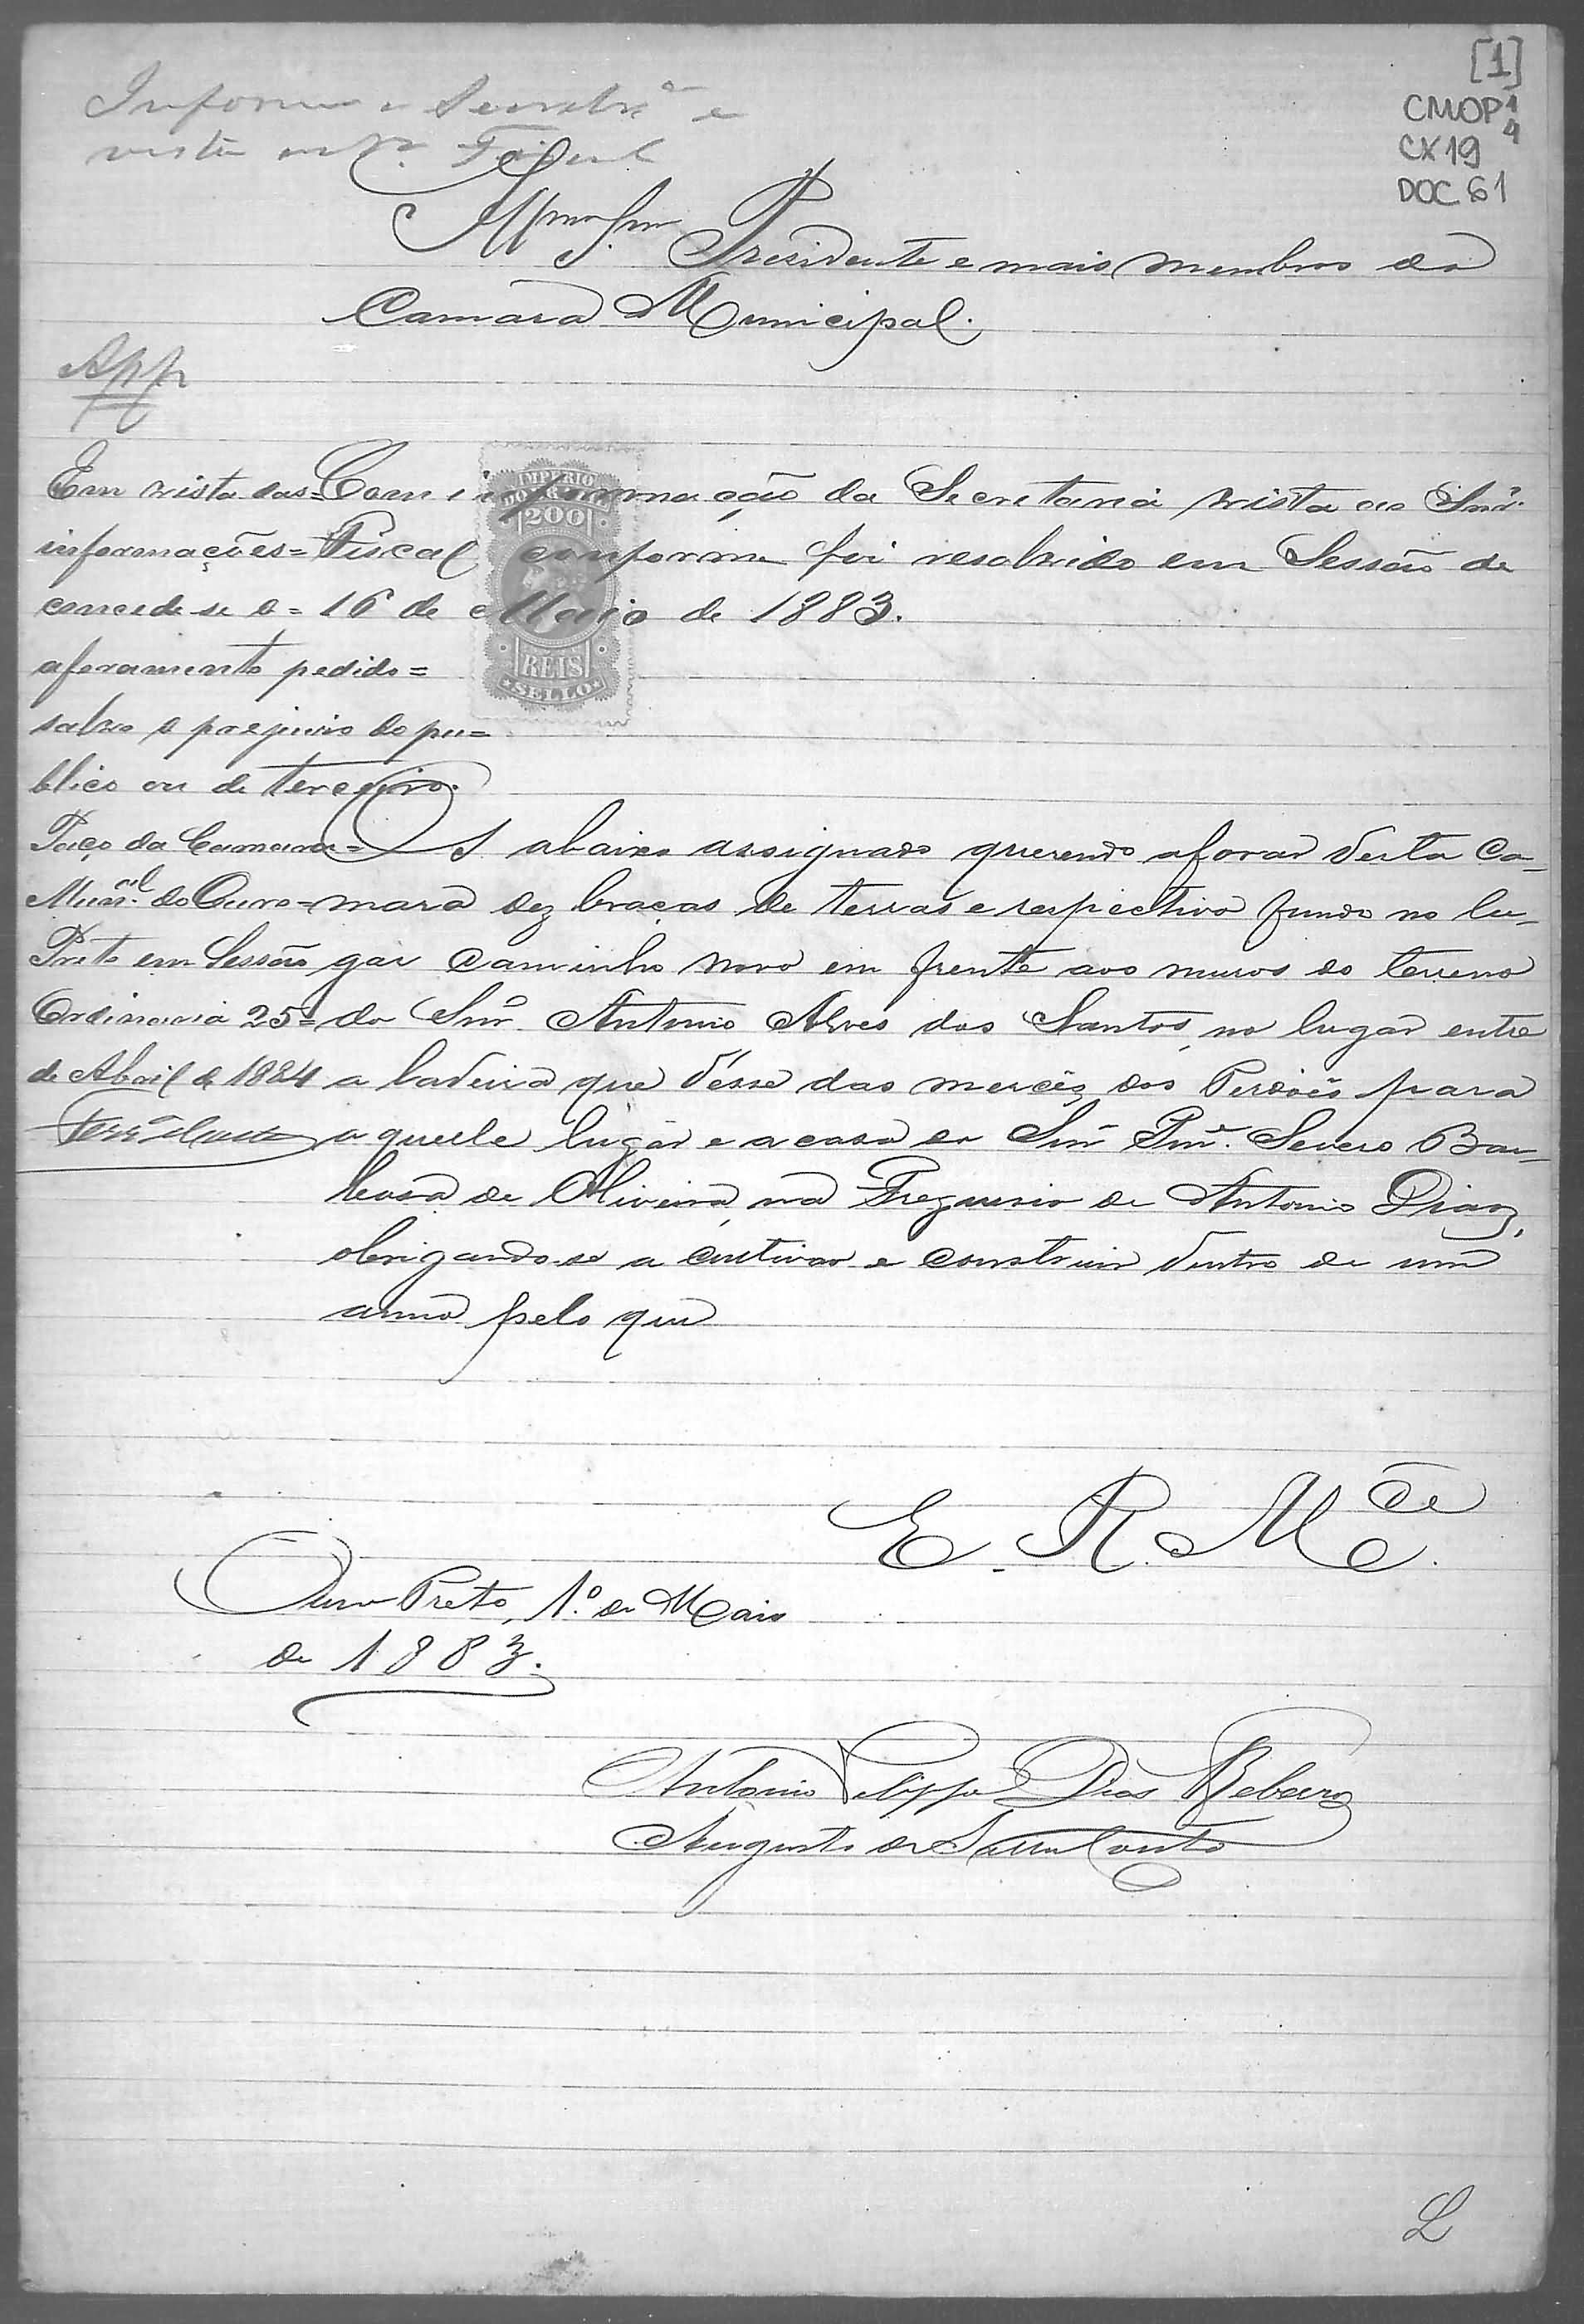 [1]
CMOP 1
4
CX 19
DOC. 61
Informe a Secretrª e
vista ao Sr. Fiscal
Illmo Snr. Presidente e mais membros da
Camara Municipal.
App
Com informação da Secretaria vista ao Snr.
Fiscal conforme foi resolvido em Sessão de
16 de Maio de 1883.
IMPERIO
DO BRAZIL
200
REIS
SELLO
Em vista das=
informações=
concede-se o=
aforamento pedido=
salvo o prejuizo do pu=
blico ou de terceiro.
Paço da Camara=
Munal. do Ouro=
Preto em Sessão
Ordinaria 25=
de Abril de 1884
O abaixo assignado querendo aforar desta Ca-
mara dez braças de terras e respectivo fundo no lu-
gar Caminho novo em frente aos muros do terreno
do Snr. Antonio Alves dos Santos, no lugar entre
a ladeira que désse das mercês dos Perdões para
aquelle lugar e a casa do Snr. Severo Bar-
bosa de Oliveira, na Freguesia de Antonio Dias,
obrigando-se a cultivar e construir dentro de um
anno pelo que
E. R. Mce
Ouro Preto, 1.º de Maio
de 1883.
Antonio Felippe Dias Rebeiro
Augusto de Couto
L